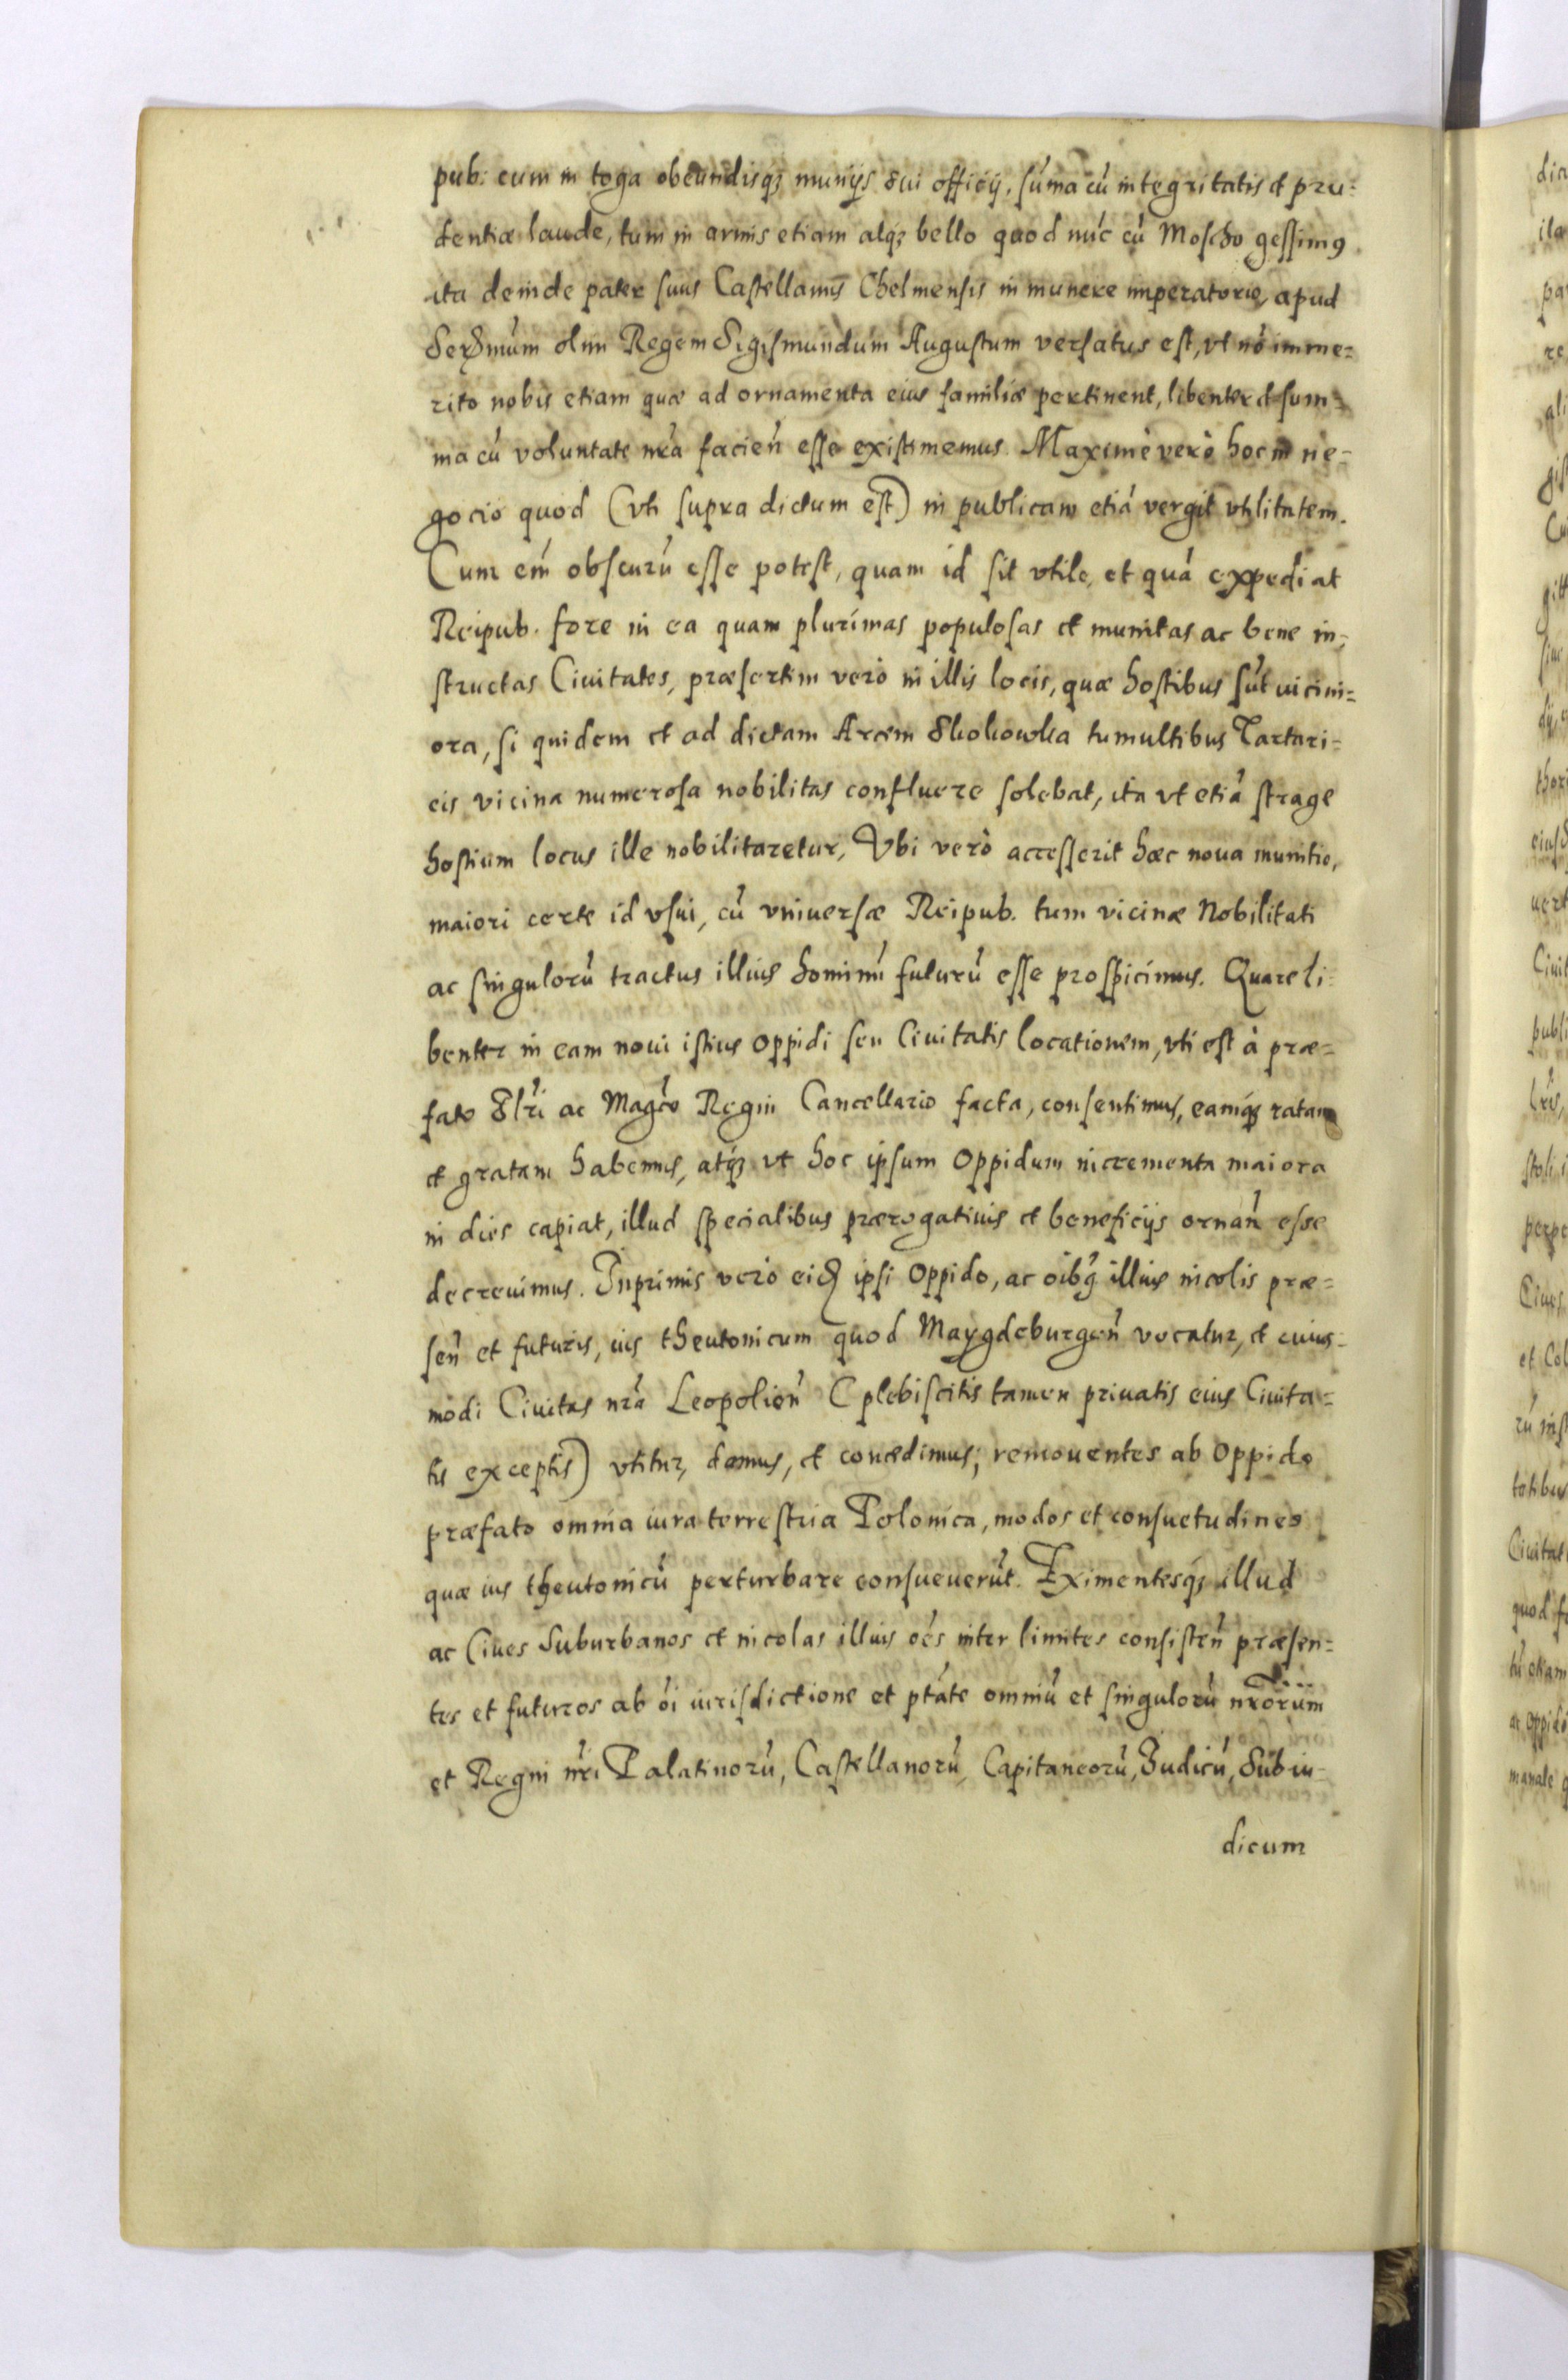 pub: cum in toga obeundisq; munijs sui officij, sūma cū integritatis et pru=
dentiæ laude, tum in armis etiam atq; bello quod nūc cū Moscho gessimꝰ
ita deinde pater suus Castellanus Chelmensis in munere imperatorio, apud
olim Regem Sigismundum Augustum versatus est, vt nō imme=
rito nobis etiam quæ ad ornamenta eius familiæ pertinent, libenter et sum=
ma cū voluntate nr̄a facien̄ esse existimemus. Maximè verò hoc in ne=
gocio quod (vti supra dictum est) in publicam etiā vergit vtilitatem.
Cum em̄ obscurū esse potest, quam id sit vtile, et quā expediat
Reipub. fore in ea quam plurimas populosas et munitas ac bene in=
structas Ciuitates, præsertim verò in illis locis, quæ hostibus sūt vicini=
ora, si quidem et ad dictam Arcem Skokowka tumultibus Tartari=
cis vicina numerosa nobilitas confluere solebat, ita vt etiā strage
hostium locus ille nobilitaretur, Vbi verò accesserit hæc noua munitio,
maiori certe id vsui, cū vniuersæ Reipub. tum vicinæ Nobilitati
ac singulorū tractus illius hominū futurū esse prospicimus. Quare li=
benter in eam noui istius oppidi seu Ciuitatis locationem, vti est à præ=
fato Illr̄i ac Magc̄o Regni Cancellario facta, consentimus, eamq; ratam
et gratam habemus, atq; vt hoc ipsum Oppidum incrementa maiora
in dies capiat, illud specialibus prærogatiuis et beneficijs ornan̄ esse
decreuimus. Inprimis verò ipsi Oppido, ac oībꝰ illius incolis præ=
sen̄ et futuris, ius theutonicum quod Maygdeburgen̄ vocatur, et cuius=
modi Ciuitas nr̄a Leopolien̄ (plebiscitis tamen priuatis eius Ciuita=
tis exceptis) vtitur, damus, et concedimus; remouentes ab Oppido
præfato omnia iura terrestria Polonica, modos et consuetudines
quæ ius theutonicū perturbare consueuerūt. Eximentesq; illud
ac Ciues Suburbanos et incolas illius oēs inter limites consisten̄ præsen=
tes et futuros ab oī iurisdictione et ptāte omniū et singulorū nrōrum
et Regni nr̄i Palatinorū, Castellanorū, Capitaneorū, Iudicū, Subiu=
dicum